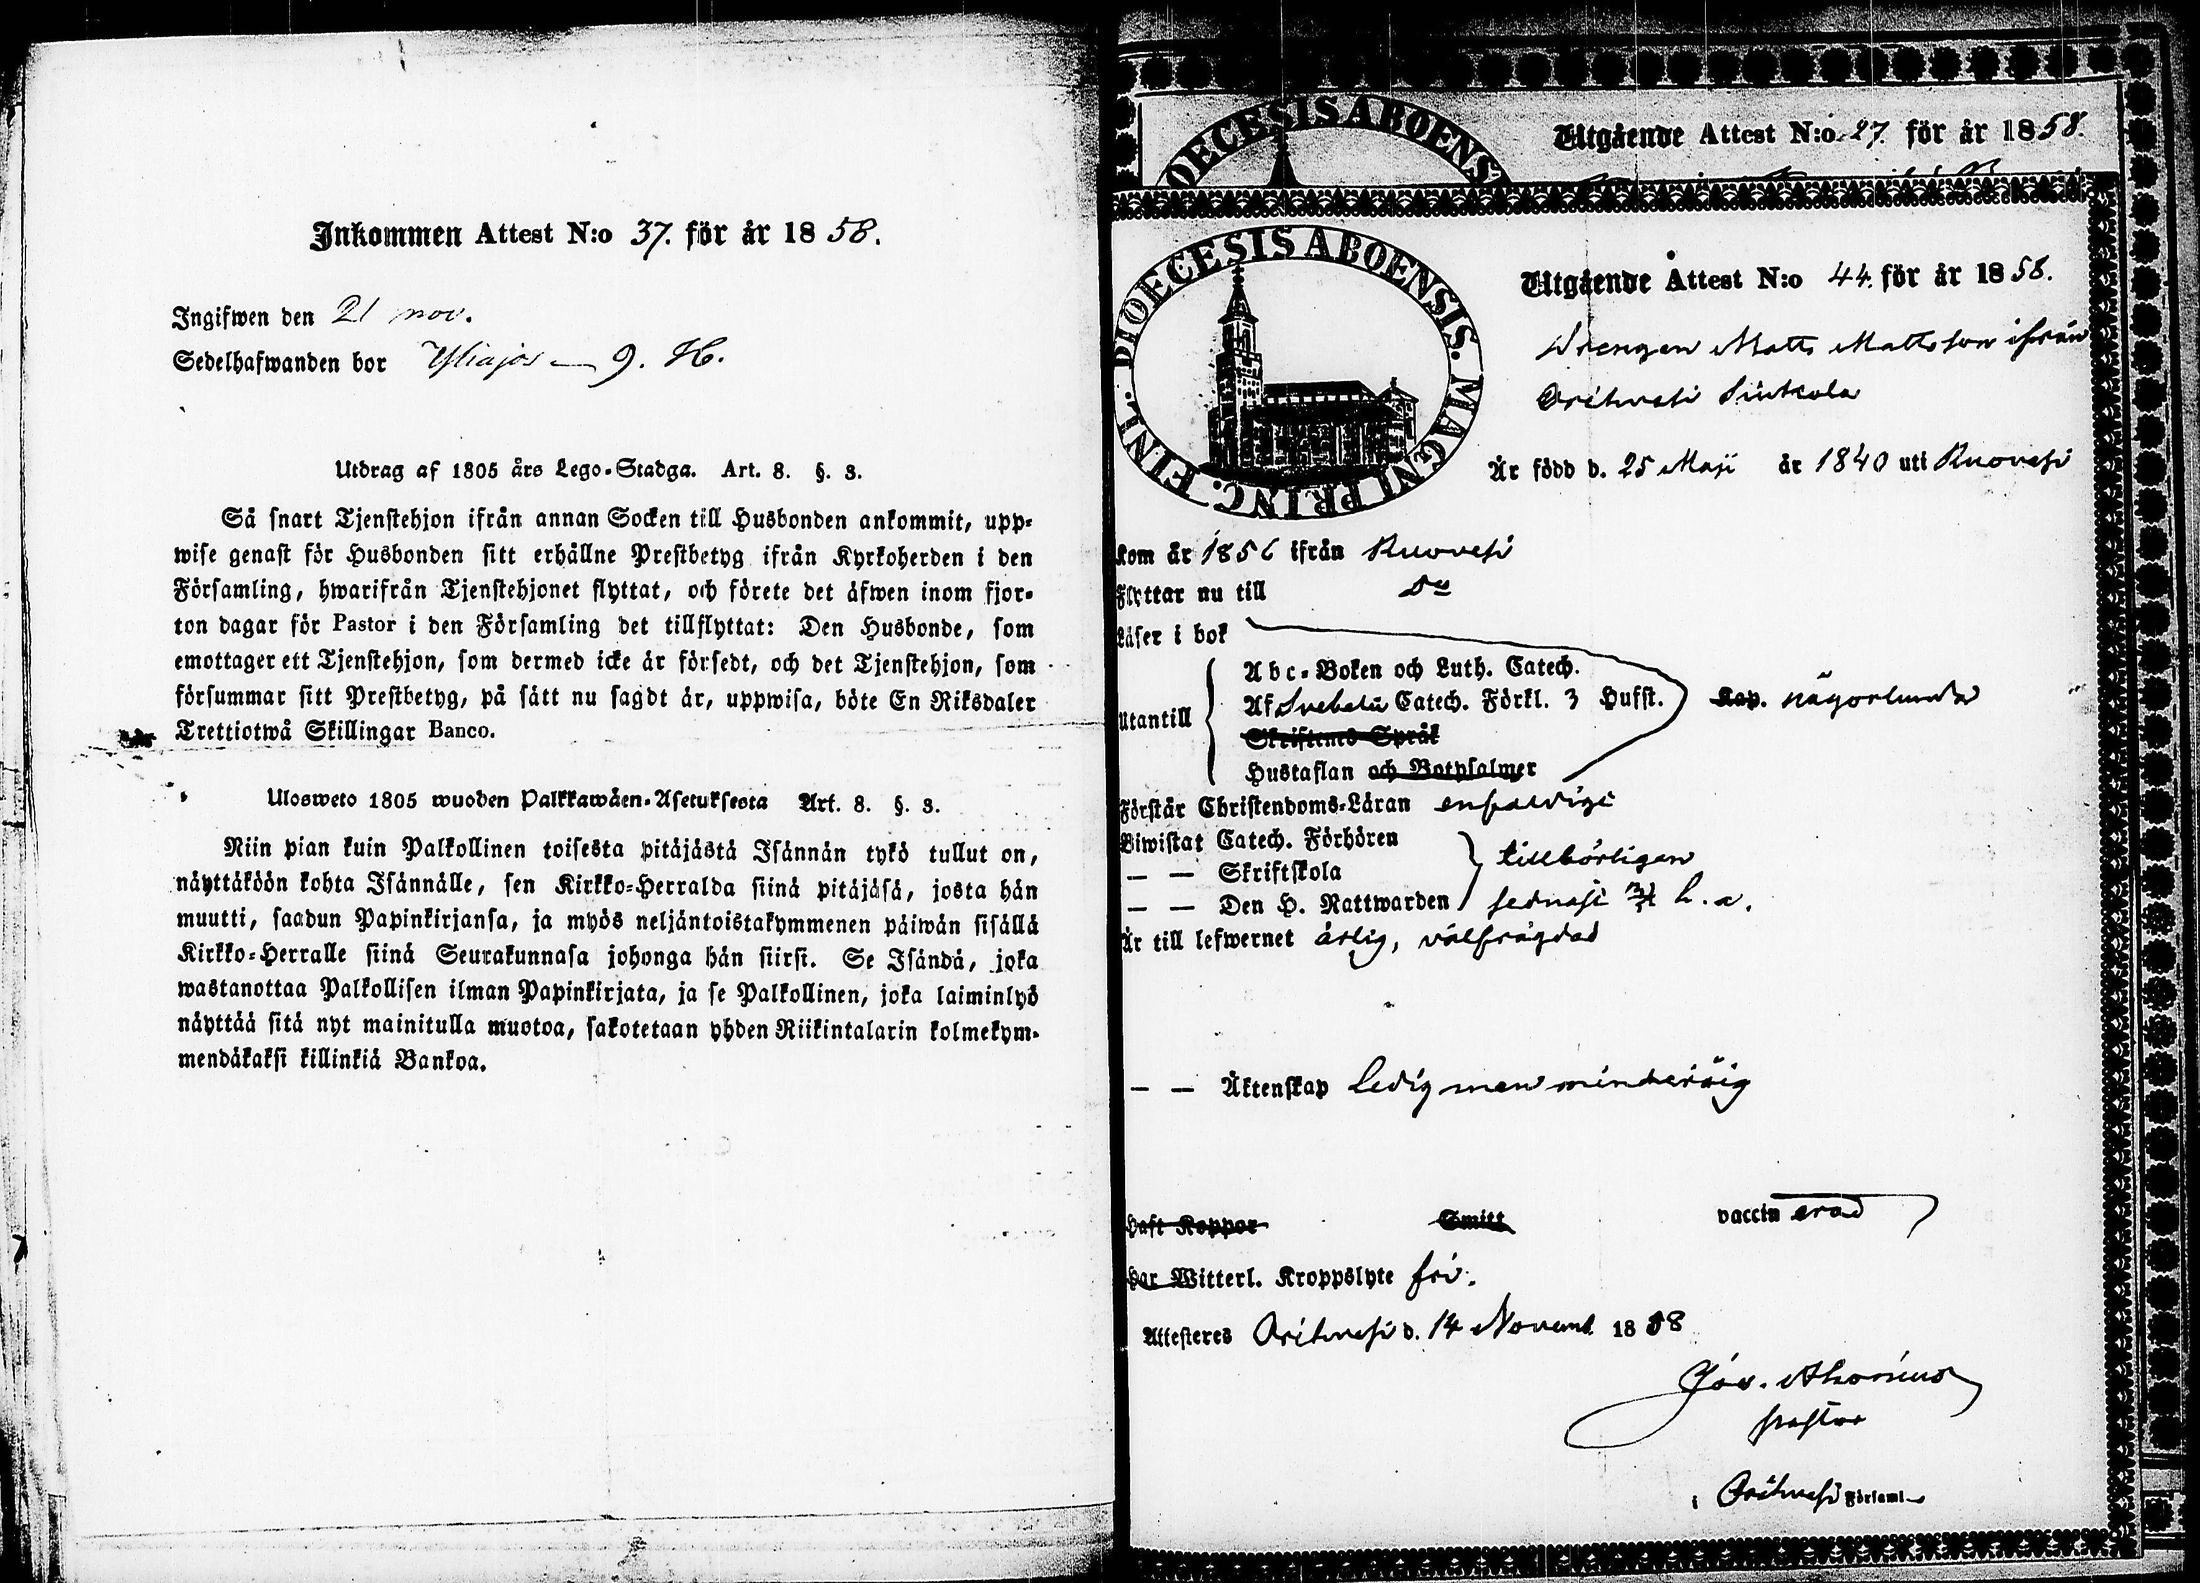 Inkommen Attest N:o 37. för år 1858.
Ingifwen den 21 nov.
Sedelhafwanden bor
Utdrag af 1805 års Lego-Stadga. Art. 8. §. 3.
Så snart Tjenstehjon ifrån annan Socken till Husbonden ankommit, upp-
wise genast för Husbonden sitt erhållne Prestbetyg ifrån Kyrkoherden i den
Församling, hwarifrån Tjenstehjonet flyttat, och förete det äfwen inom fjor-
ton dagar för Pastor i den Församling det tillflyttat: Den Husbonde, som
emottager ett Tjenstehjon, som dermed icke är försedt, och det Tjenstehjon, som
försummar sitt Prestbetyg, på sätt nu sagdt är, uppwisa, böte En Riksdaler
Trettiotwå Skillingar Banco.
Ulosweto 1805 wuoden Palkkawäen-Asetuksesta Art. 8. §. 3.
Niin pian kuin Palkollinen toisesta pitäjästä Isännän tykö tullut on,
näyttäköön kohta Isännälle, sen Kirkko-Herralda siinä pitäjäsä, josta hän
muutti, saadun Papinkirjansa, ja myös neljäntoistakymmenen päiwän sisällä
Kirkko-Herralle siinä Seurakunnasa johonga hän siirsi. Se Isändä, joka
wastanottaa Palkollisen ilman Papinkirjata, ja se Palkollinen, joka laiminlyö
näyttää sitä nyt mainitulla muotoa, sakotetaan yhden Riikintalarin kolmekym-
mendäkaksi killinkiä Bankoa.
DIOECESIS ABOENS
Utgående Attest N:o 27. för år 1858.
DIOECESIS ABOENSIS. MAGNI PRINC. FINL.
Utgående Attest N:o 44. för år 1858.
Drengen Matts Mattsson ifrån
Orihvesi Siukola
Är född d. 25 Maji år 1840 uti Ruovesi
kom år 1856 ifrån Ruovesi
Flyttar nu till do
Läser i bok
Abc-Boken och Luth. Catech.
Utantill Af Svebelii Catech. Förkl. 3 Hufst. Kap. någorlunda
Skriftenes Språk
Hustaflan och Botpsalmer
Förstår Christendoms-Läran enfaldigt
Biwistat Catech. Förhören
— — Skriftskola tillbörligen
— — Den H. Nattwarden sednast h. a.
Är till lefwernet ärlig, välfrägdad
— — Äktenskap Ledig men minderårig
Haft Koppor Smitt vaccinerad
Har Witterl. Kroppslyte fri.
Attesteres Orihvesi d. 14 Novemb. 1858
Pastor
i Orihvesi Församl.